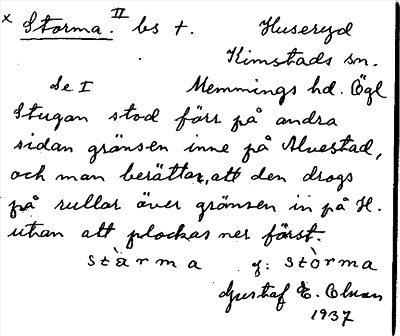 x Storma. II bs +. Huseryd
Kimstads sn.
Se I Memmings hd. Ögl
Stugan stod förr på andra
sidan gränsen inne på Alvestad,
och man berättar, att den drogs
på rullar över gränsen in på H.
utan att plockas ner först.
stàrma g: stòrma
Gustaf E. Olsson
1937